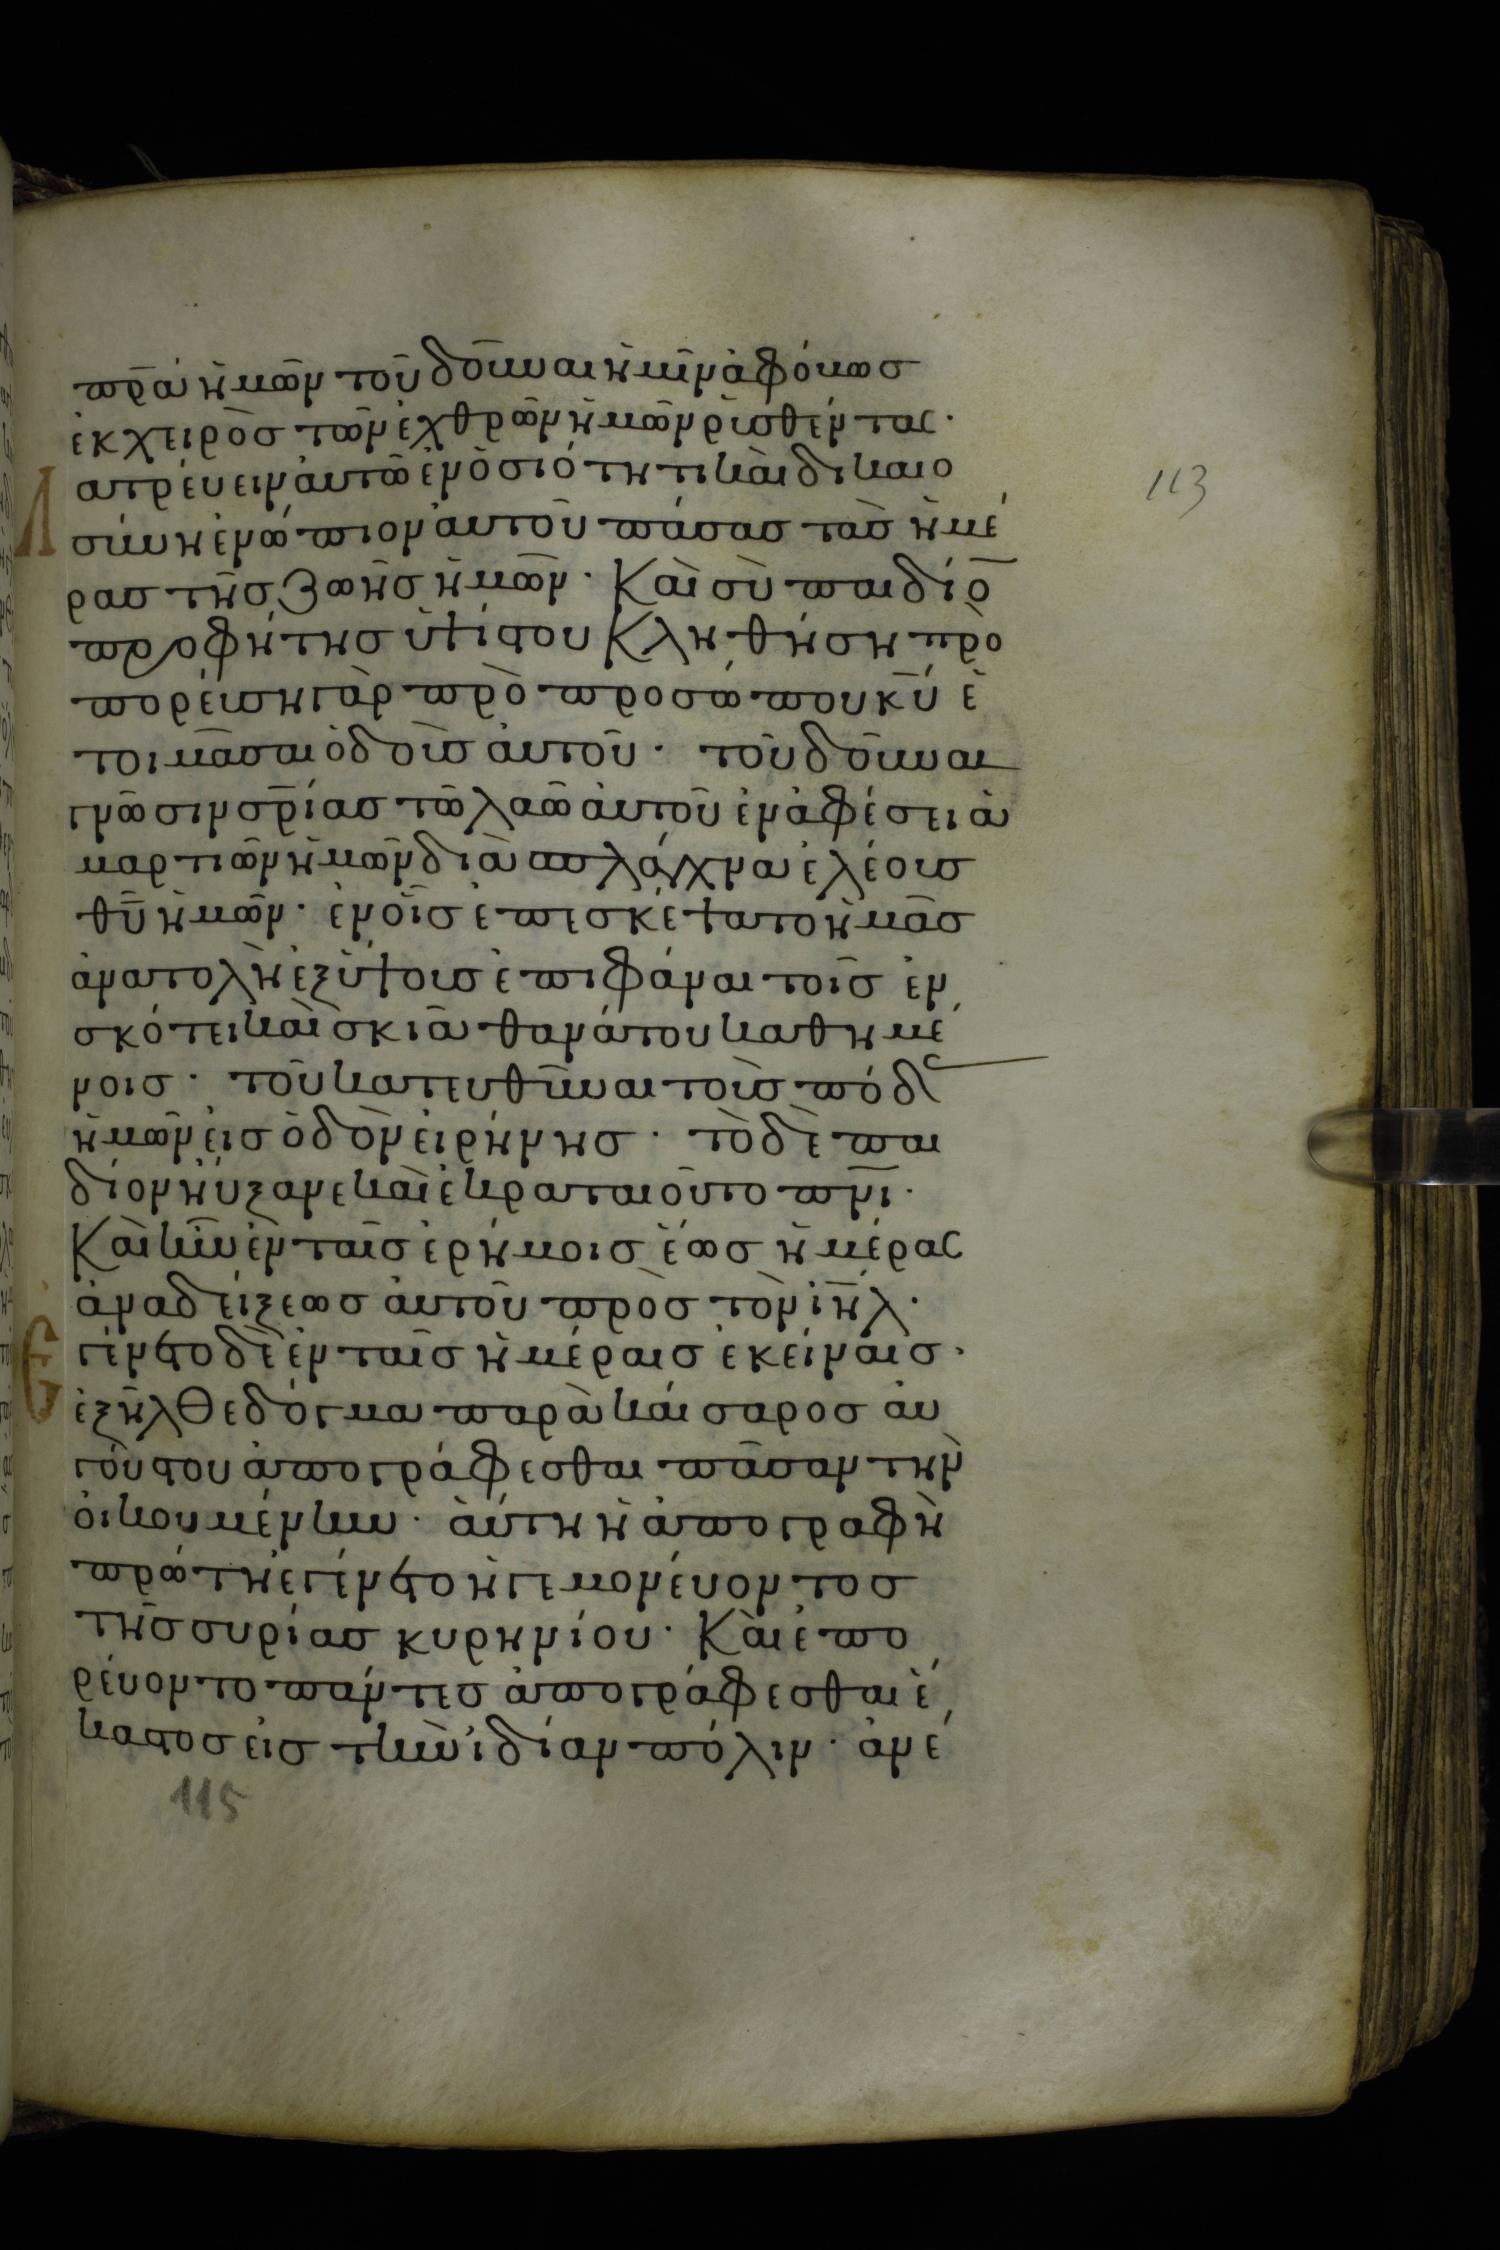 π̅ρ̅α ἡμῶν τοῦ δοῦναι ἡμῖν ἀφόβως
113
ἐκ χειρὸς τῶν ἐχθρῶν ἡμῶν ῥυσθέντας·
Λατρεύειν αὐτῶ ἐν ὁσιότητι καὶ δικαιο
σύνη ἐνώπιον αὐτοῦ πάσας τὰς ἡμέ
ρας τῆς ζωῆς ἡμῶν· Καὶ σὺ παιδίο̅
προφήτης ὑψίστου Κληθήση προ
πορεύση γὰρ πρὸ προσώπου κ̅υ ἑ
τοιμᾶσαι ὁδοὺς αὐτοῦ· τοῦ δοῦναι
γνῶσιν σ̅ρ̅ίας τῶ λαῶ αὐτοῦ ἐν ἀφέσει ἁ
μαρτιῶν ἡμῶν διὰ σπλάγχνα ἐλέους
θ̅υ ἡμῶν· ἐν οἷς ἐπισκέψατο ἡμᾶς
ἀνατολὴ ἐξ ὕψους ἐπιφάναι τοῖς ἐν
σκότει καὶ σκιᾶ θανάτου καθημέ
νοις· τοῦ κατευθῦναι τοὺς πόδ
ἡμῶν εἰς ὁδὸν εἰρήνης· τὸ δὲ παι
δίον ηὔξανε καὶ ἐκραταιοῦτο π̅ν̅ι·
Καὶ ἦν ἐν ταῖς ἐρήμοις ἕως ἡμέρας
ἀναδείξεως αὐτοῦ πρὸς τὸν ι̅η̅λ·
Ἐγένετο δὲ ἐν ταῖς ἡμέραις ἐκείναις·
ἐξῆλθε δόγμα παρὰ καίσαρος αὐ
γούστου ἀπογράφεσθαι πᾶσαν τὴν
οἰκουμένην· ἁύτη ἡ ἀπογραφὴ
πρώτη ἐγένετο ἡγεμονέυοντος
τῆς συρίας κυρηνίου· Καὶ ἐπο
ρέυοντο πάντες ἀπογράφεσθαι ἕ
καστος εἰς τὴν ἰδίαν πόλιν· ἀνέ
115